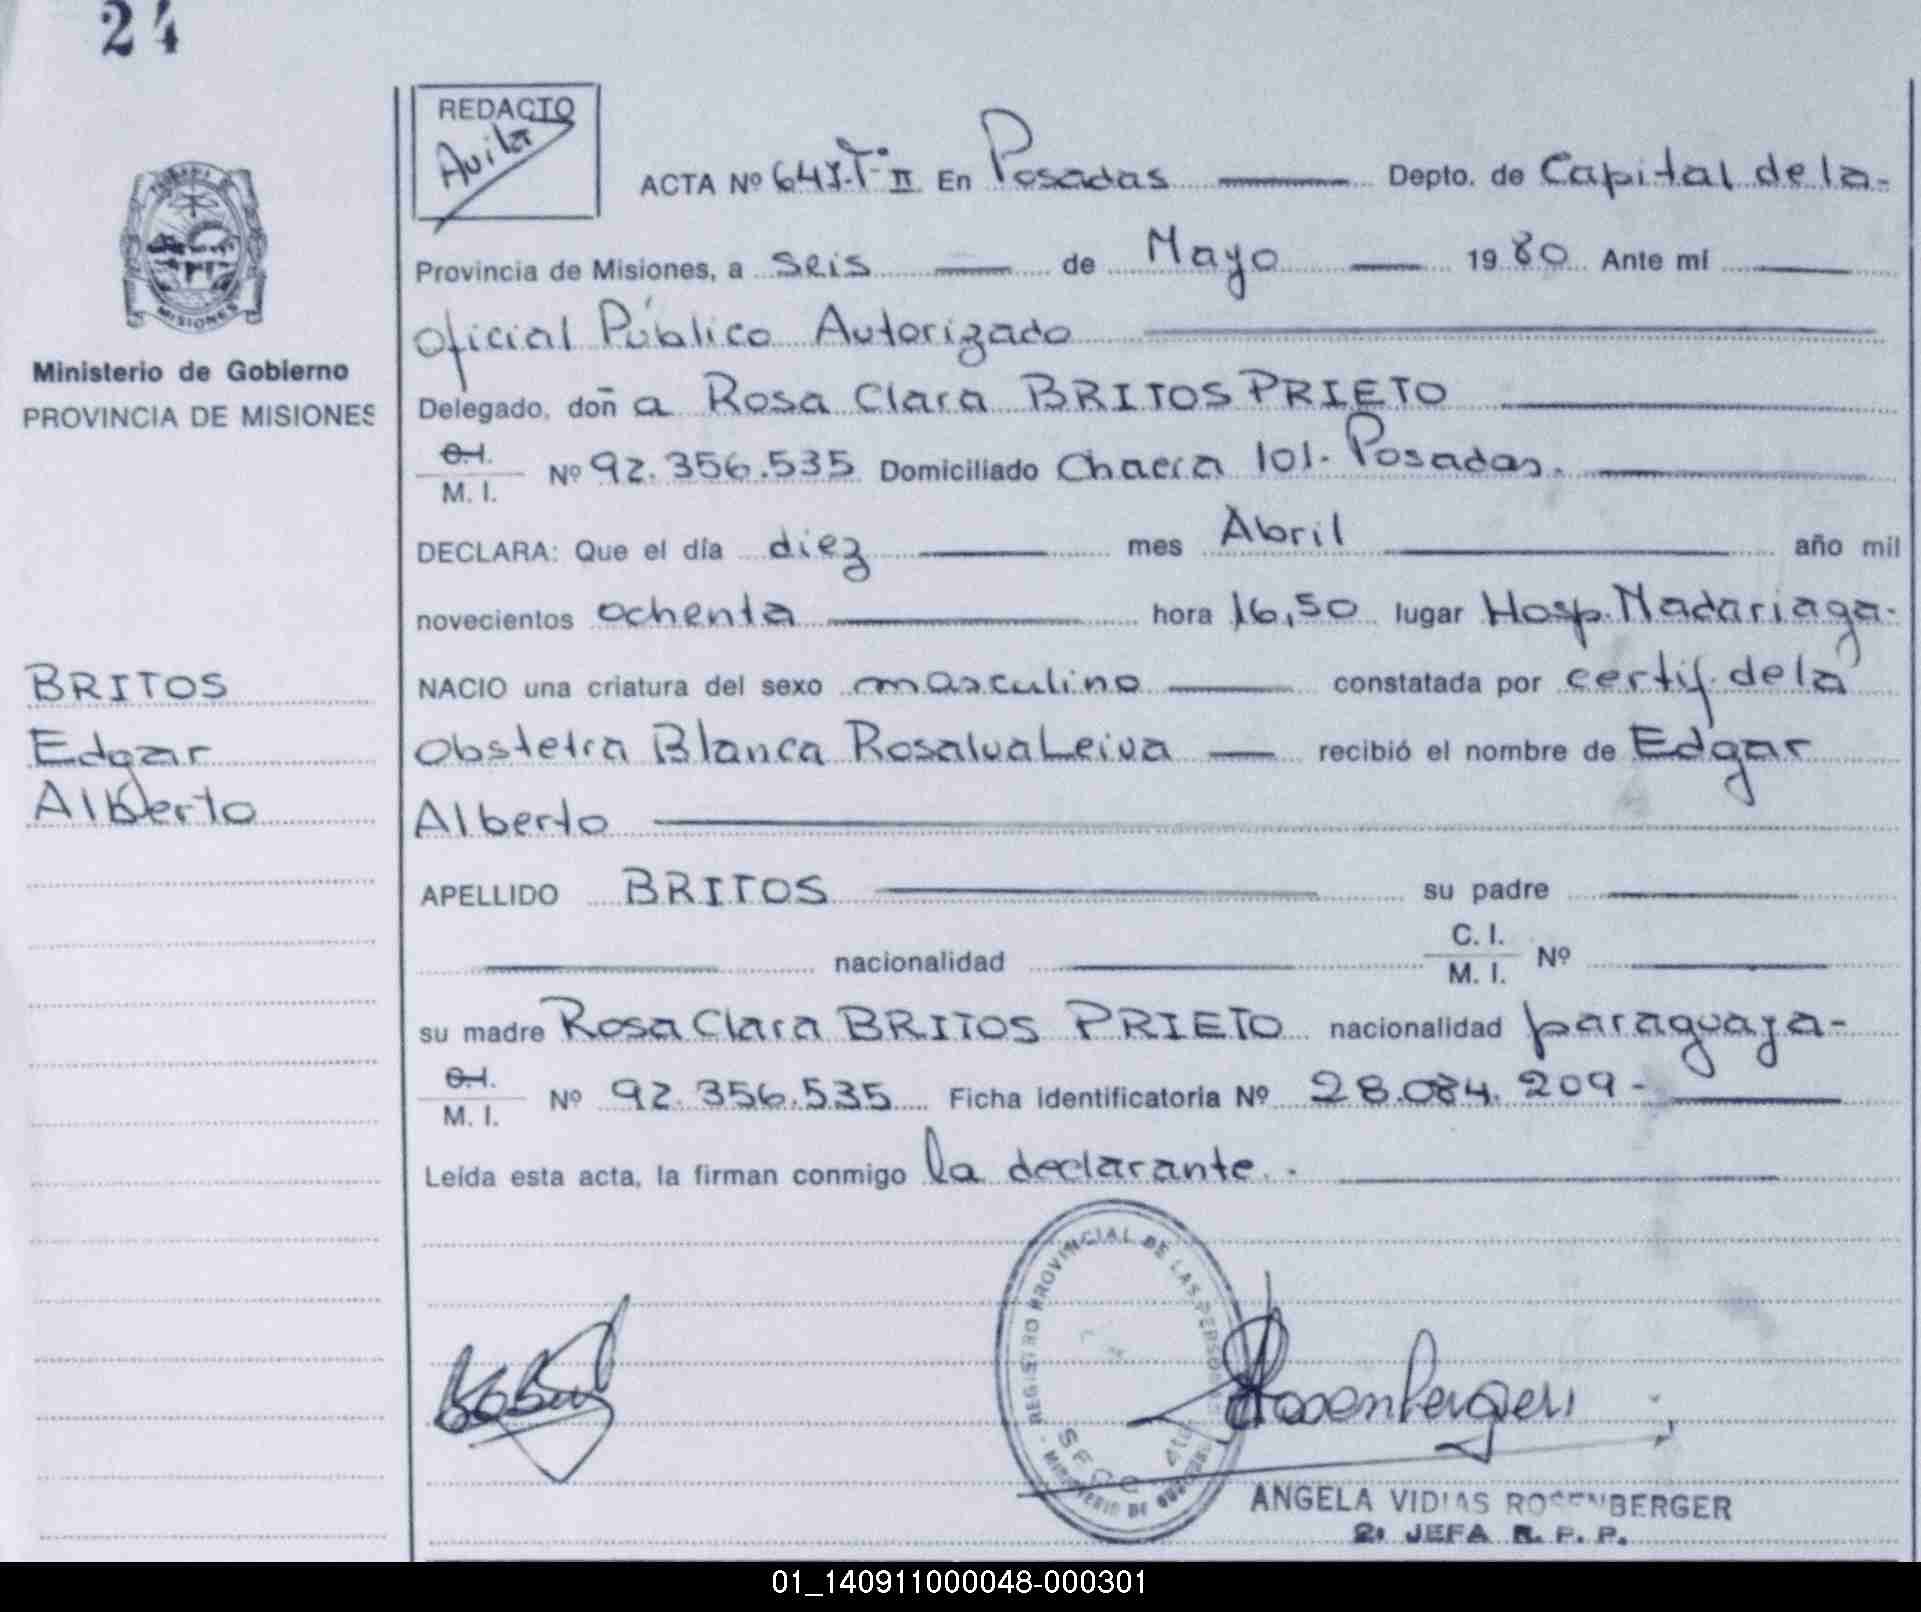 24
REDACTO
Avila
ACTA Nº 641.Tº II En Posadas Depto. de Capital de la-
Provincia de Misiones, a seis de Mayo 1980 Ante mí
oficial Público Autorizado
Delegado, doña Rosa Clara BRITOS PRIETO
C.I.
M. I. Nº 92.356.535 Domiciliado Chacra 101. Posadas.
DECLARA: Que el día diez mes Abril año mil
novecientos ochenta hora 16,50 lugar Hosp. Madariaga.
NACIO una criatura del sexo masculino constatada por certif. de la
obstetra Blanca Rosalva Leiva recibió el nombre de Edgar
Alberto
APELLIDO BRITOS su padre
nacionalidad C. I.
M. I. Nº
su madre Rosa Clara BRITOS PRIETO nacionalidad paraguaya-
C.I.
M. I. Nº 92.356.535 Ficha identificatoria Nº 28.084.209-
Leída esta acta, la firman conmigo la declarante.-
MISIONES
Ministerio de Gobierno
PROVINCIA DE MISIONES
BRITOS
Edgar
Alberto
REGISTRO PROVINCIAL DE LAS PERSONAS
MINISTERIO DE GOBIERNO
SECC
Rosenberger
ANGELA VIDIAS ROSENBERGER
2ª JEFA R. P. P.
01_140911000048-000301